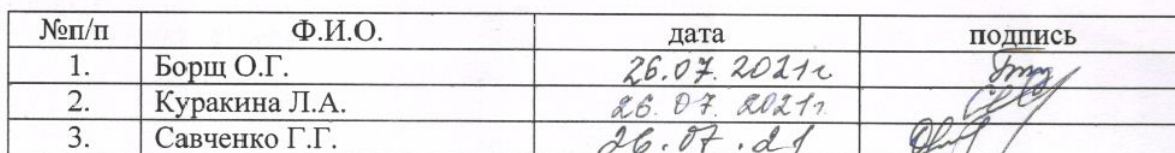 №п/п Ф.И.О. дата подпись
1. Борщ О.Г. 26.07.2021г
2. Куракина Л.А. 26.07.2021г.
3. Савченко Г.Г. 26.07.21